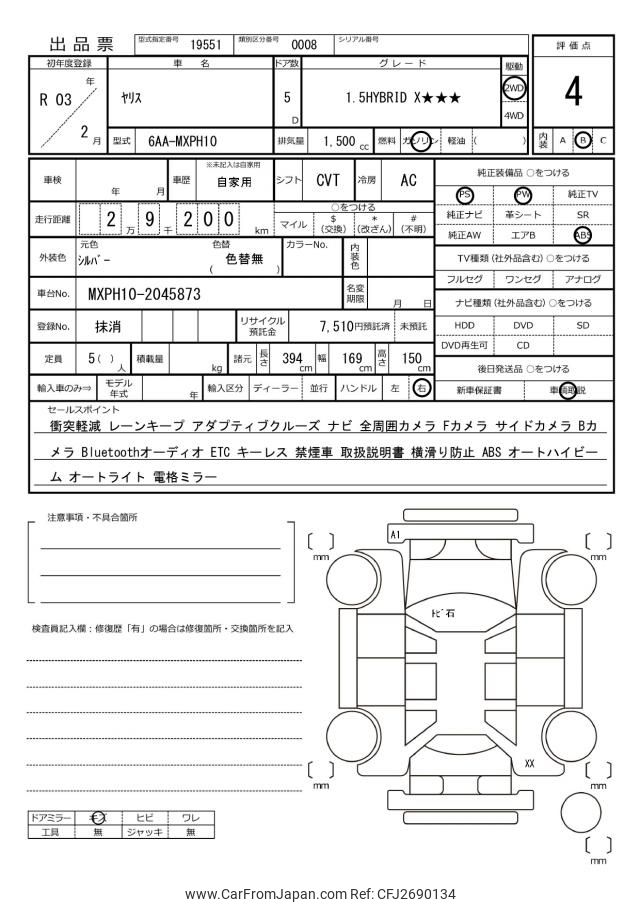 出品票 型式指定番号 19551 類別区分番号 0008 シリアル番号
初年度登録 車 名 ドア数 グレード 駆動 評価点
R 03 年 ヤリス 5 D 1.5HYBRID X★★★ 2WD 4WD 4
2 月 型式 6AA-MXPH10 排気量 1,500 cc 燃料 ガソリン 軽油 ( ) 内装 A B C
車検 年 月 車歴 ※未記入は自家用 自家用 シフト CVT 冷房 AC
走行距離 2 万 9 千 2 0 0 km
○をつける
マイル $(交換) *(改ざん) #(不明)
外装色 元色 シルバー 色替 ( 色替無 ) カラーNo. 内装色
車台No. MXPH10-2045873 名変期限 月 日
登録No. 抹消 リサイクル預託金 7,510円預託済 未預託
定員 5( )人 積載量 kg 諸元 長さ 394 cm 幅 169 cm 高さ 150 cm
輸入車のみ⇒ モデル年式 年 輸入区分 ディーラー 並行 ハンドル 左 右
純正装備品 ○をつける
PS PW 純正TV
純正ナビ 革シート SR
純正AW エアB ABS
TV種類(社外品含む) ○をつける
フルセグ ワンセグ アナログ
ナビ種類(社外品含む) ○をつける
HDD DVD SD
DVD再生可 CD
後日発送品 ○をつける
新車保証書 車輌取説
セールスポイント
衝突軽減 レーンキープ アダプティブクルーズ ナビ 全周囲カメラ Fカメラ サイドカメラ Bカ
メラ Bluetoothオーディオ ETC キーレス 禁煙車 取扱説明書 横滑り防止 ABS オートハイビー
ム オートライト 電格ミラー
注意事項・不具合箇所
検査員記入欄：修復歴「有」の場合は修復箇所・交換箇所を記入
A1
[ ] mm
[ ] mm
トビ石
XX
[ ] mm
[ ] mm
[ ] mm
ドアミラー キズ ヒビ ワレ
工具 無 ジャッキ 無
www.CarFromJapan.com Ref: CFJ2690134